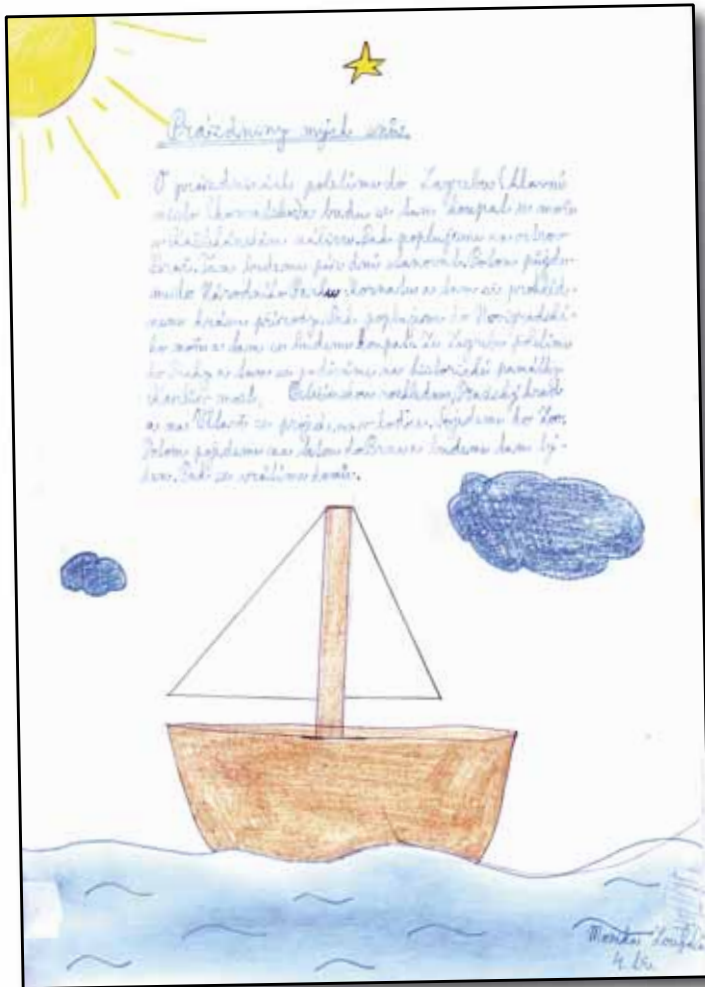 Prázdniny mých snů.
O prázdninách poletíme do Zagrebu (hlavní
město Chorvatska) a budu se tam koupat v moři
v Kaštelánském zálivu. Pak poplujeme na ostrov
Brač. Tam budeme pár dní stanovat. Potom půjde-
me do Národního Parku Kornatu a tam si prohléd-
neme krásu přírody. Pak poplujem do Novigradské-
ho moře a tam se budem koupat. Ze Zagrebu poletíme
do Prahy a tam se podíváme na historické památky
Karlův most, Petřínskou rozhlednu, Pražský hrad
a na Vltavě se projedeme v loďce. Pojedeme do Zoo.
Potom pojedeme na do Brna a budeme tam tý-
den. Pak se vrátíme domů.
Monika
4.